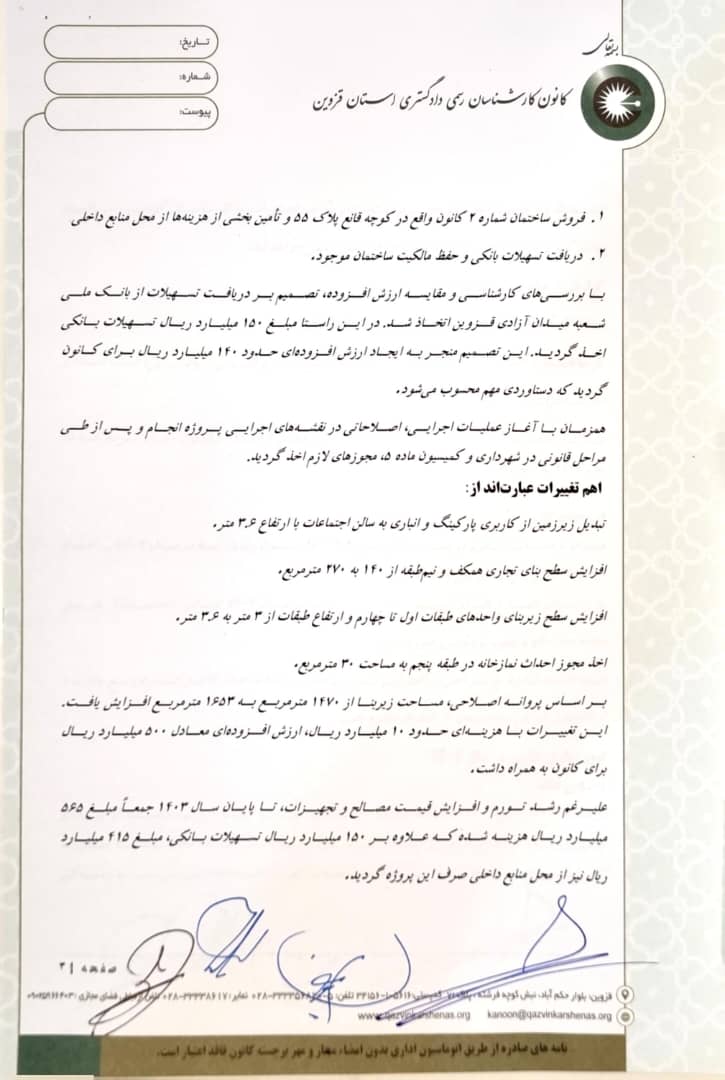 بسمه تعالی
کانون کارشناسان رسمی دادگستری استان قزوین
تاریخ:
شماره:
پیوست:
۱. فروش ساختمان شماره ۲ کانون واقع در کوچه قانع پلاک ۵۵ و تأمین بخشی از هزینه‌ها از محل منابع داخلی
۲. دریافت تسهیلات بانکی و حفظ مالکیت ساختمان موجود.
با بررسی‌های کارشناسی و مقایسه ارزش افزوده، تصمیم بر دریافت تسهیلات از بانک ملی
شعبه میدان آزادی قزوین اتخاذ شد. در این راستا مبلغ ۱۵۰ میلیارد ریال تسهیلات بانکی
اخذ گردید. این تصمیم منجر به ایجاد ارزش افزوده‌ای حدود ۱۴۰ میلیارد ریال برای کانون
گردید که دستاوردی مهم محسوب می‌شود.
همزمان با آغاز عملیات اجرایی، اصلاحاتی در نقشه‌های اجرایی پروژه انجام و پس از طی
مراحل قانونی در شهرداری و کمیسیون ماده ۵، مجوزهای لازم اخذ گردید.
اهم تغییرات عبارت‌اند از:
تبدیل زیرزمین از کاربری پارکینگ و انباری به سالن اجتماعات با ارتفاع ۳.۶ متر.
افزایش سطح بنای تجاری همکف و نیم‌طبقه از ۱۴۰ به ۲۷۰ مترمربع.
افزایش سطح زیربنای واحدهای طبقات اول تا چهارم و ارتفاع طبقات از ۳ متر به ۳.۶ متر.
اخذ مجوز احداث نمازخانه در طبقه پنجم به مساحت ۳۰ مترمربع.
بر اساس پروانه اصلاحی، مساحت زیربنا از ۱۴۷۰ مترمربع به ۱۶۵۳ مترمربع افزایش یافت.
این تغییرات با هزینه‌ای حدود ۱۰ میلیارد ریال، ارزش افزوده‌ای معادل ۵۰۰ میلیارد ریال
برای کانون به همراه داشت.
علیرغم رشد تورم و افزایش قیمت مصالح و تجهیزات، تا پایان سال ۱۴۰۳ جمعاً مبلغ ۵۶۵
میلیارد ریال هزینه شده که علاوه بر ۱۵۰ میلیارد ریال تسهیلات بانکی، مبلغ ۴۱۵ میلیارد
ریال نیز از محل منابع داخلی صرف این پروژه گردید.
صفحه
قزوین: بلوار حکم آباد، نبش کوچه فرشته، پلاک ۷۰ کدپستی: تلفن: نمابر: ۰۲۸-۳۳۳۳۸۶۱۷ فضای مجازی:
www.qazvinkarshenas.org kanoon@qazvinkarshenas.org
نامه های صادره از طریق اتوماسیون اداری بدون امضاء مجاز و مهر برجسته کانون فاقد اعتبار است.